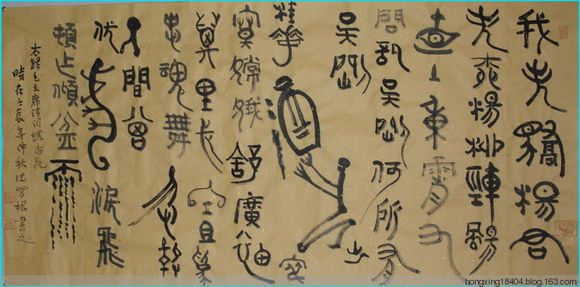 我失驕楊君
失柳楊柳輕颺
直上重霄九
問訊吳剛何所有
吳剛捧出
桂花酒寂
寞嫦娥舒廣袖
萬里長空且為
忠魂舞忽報
人間曾
伏虎淚飛
頓作傾盆雨
右錄毛主席詩詞蝶戀花
時在壬辰年仲秋書之
hongxing18404.blog.163.com